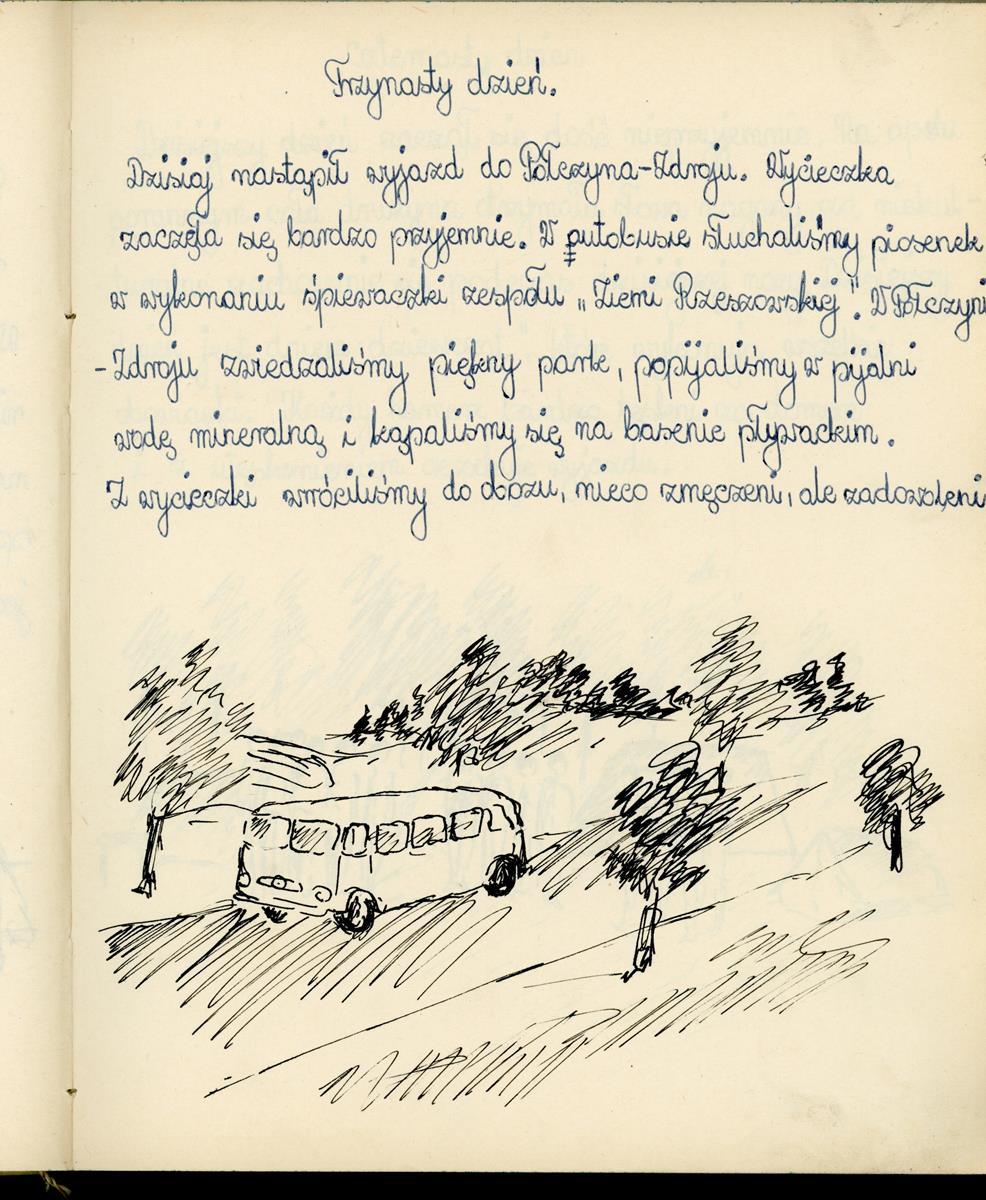 Trzynasty dzień.
Dzisiaj nastąpił wyjazd do Połczyna-Zdroju. Wycieczka
zaczęła się bardzo przyjemnie. W autobusie słuchaliśmy piosenek
w wykonaniu śpiewaczki zespołu „Ziemi Rzeszowskiej". W Połczyni
-Zdroju zwiedzaliśmy piękny park, popijaliśmy w pijalni
wodę mineralną i kąpaliśmy się na basenie pływackim.
Z wycieczki wróciliśmy do obozu, nieco zmęczeni, ale zadowoleni